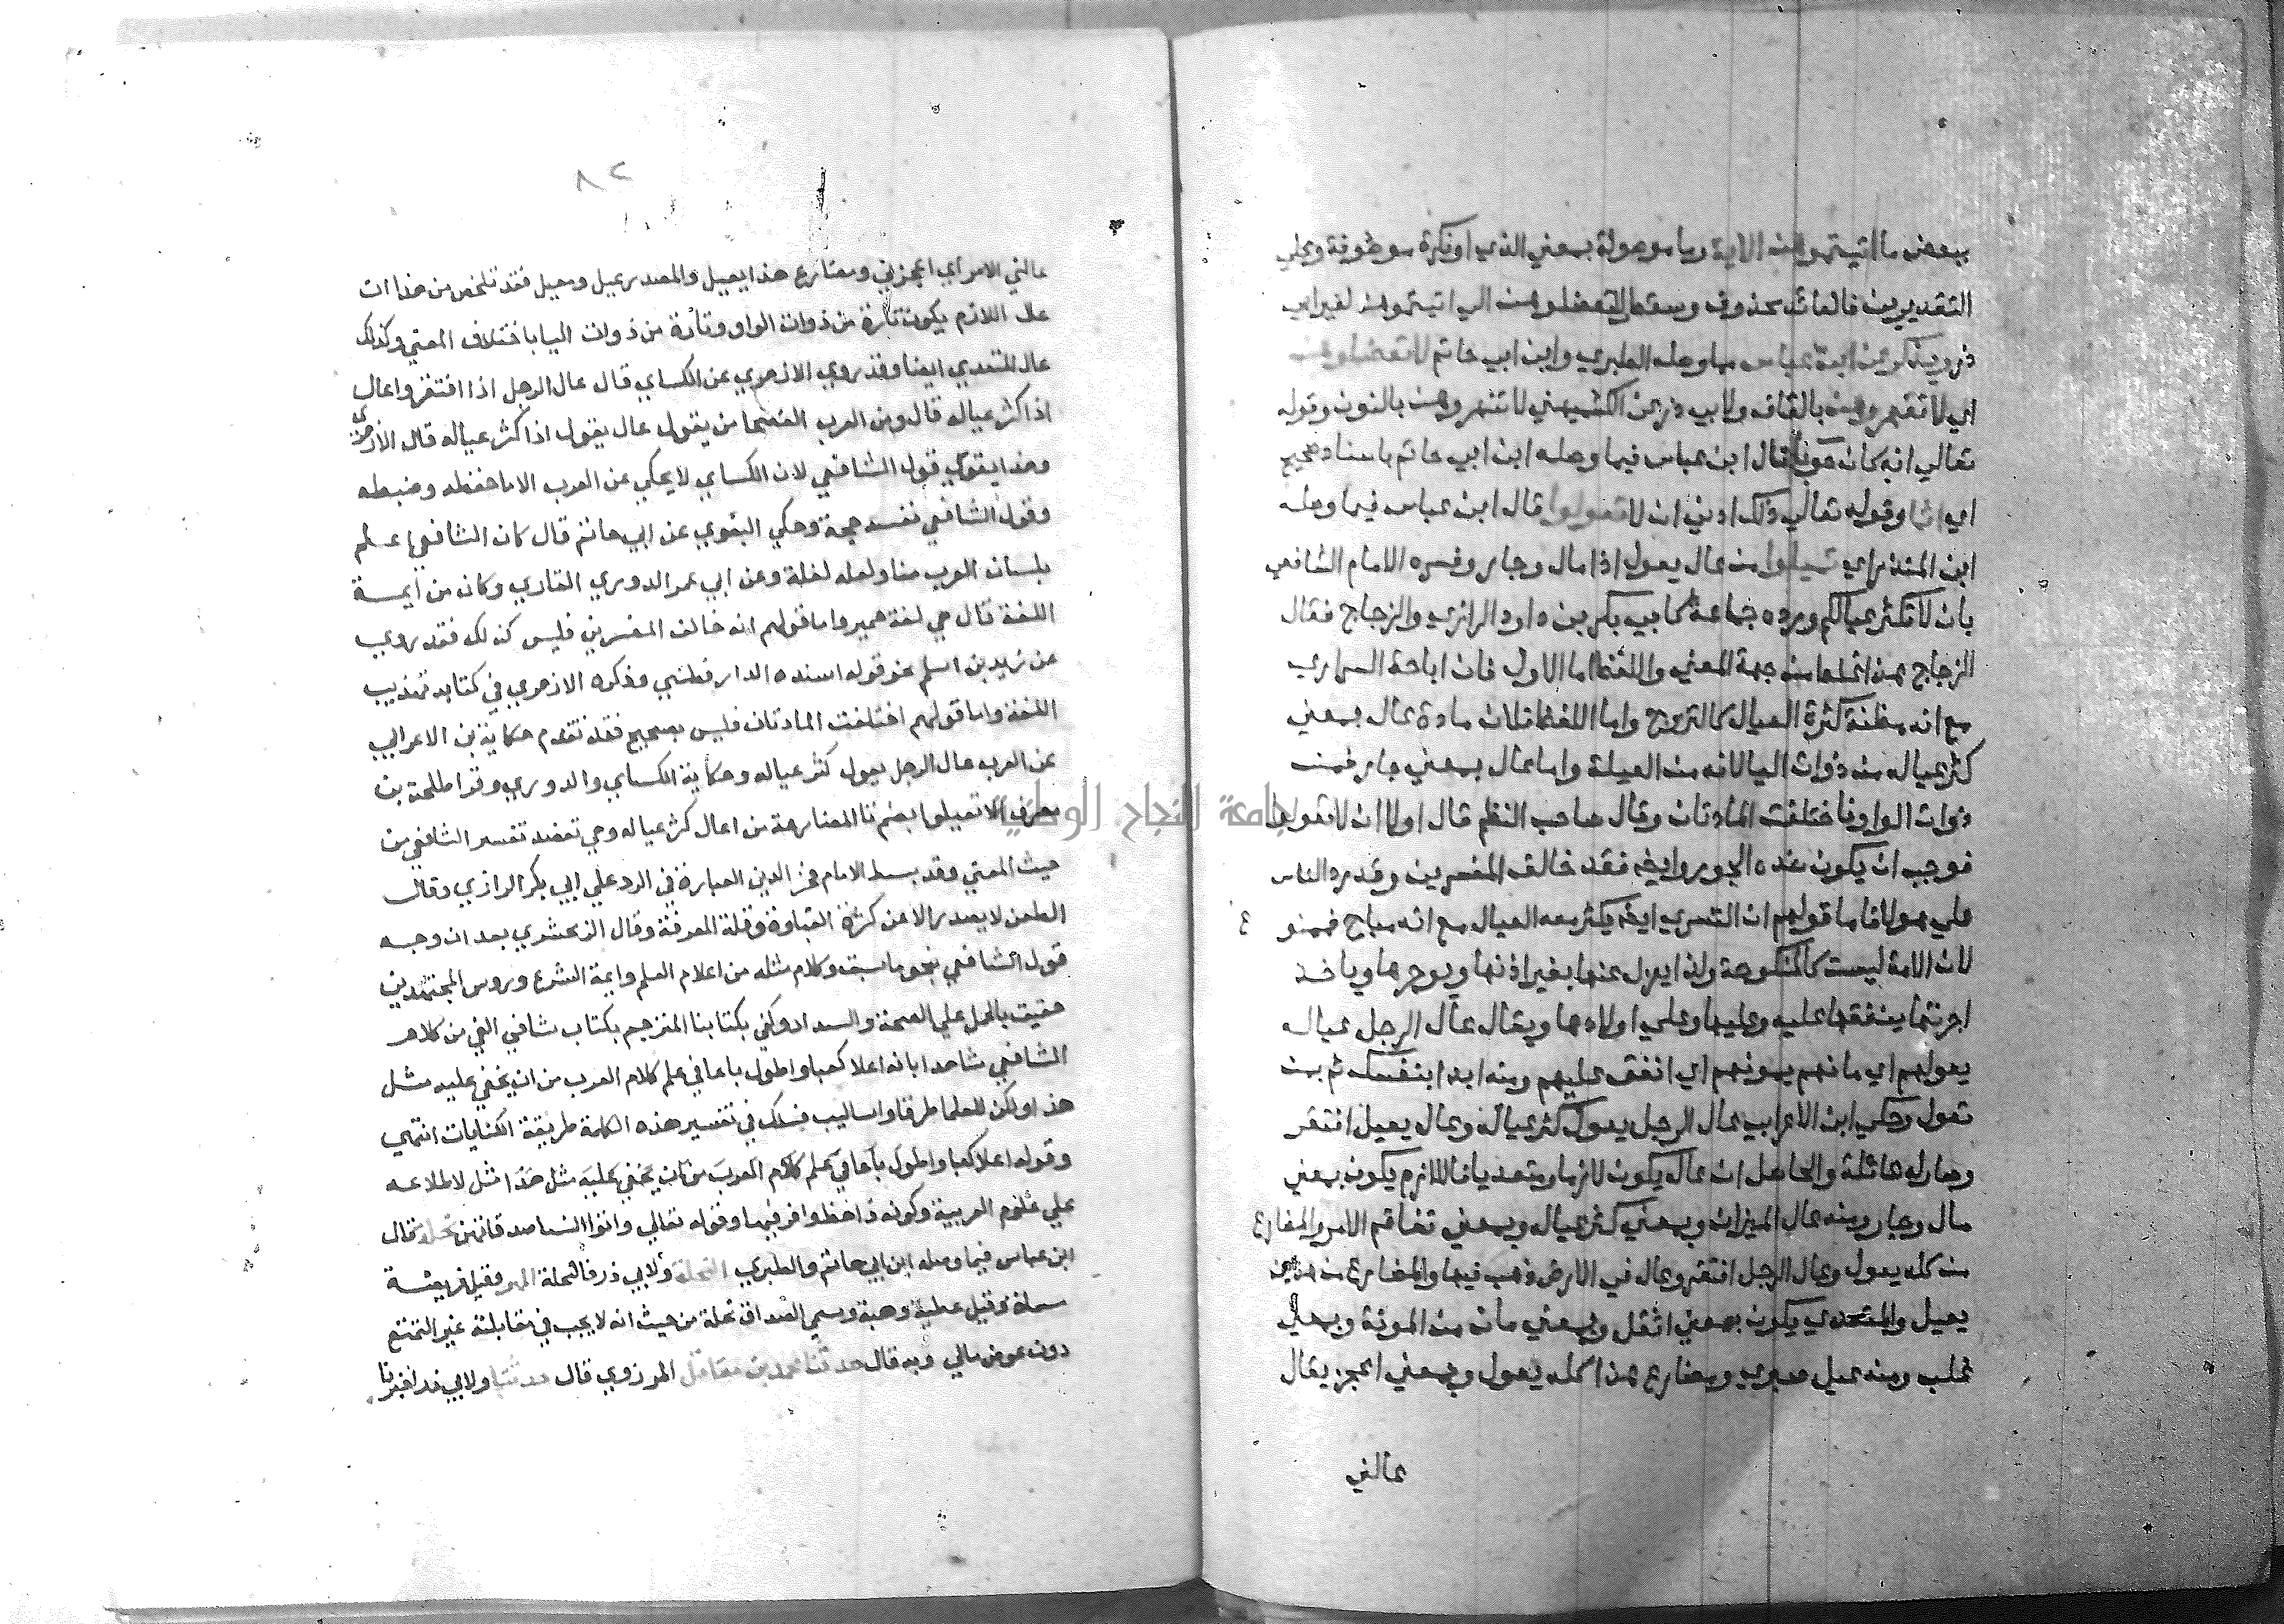 ببعض ما اتيتموهن الاية وما موصولة بمعني الذي او نكرة موصوفة وعلي
التقديرين فالعائد محذوف وسقط لا تعضلوهن الي اتيتموهن لغير ابي
ذر ويذكر عن ابن عباس مما وصله الطبري وابن ابي حاتم لا تعضلوهن
اي لا تقهروهن بالقاف ولابي ذر عن الكشميهني لا تنهروهن بالنون وقوله
تعالي انه كان حوبا قال ابن عباس فيما وصله ابن ابي حاتم باسناد صحيح
اي اثما وقوله تعالي ذلك ادني ان لا تعولوا قال ابن عباس فيما وصله
ابن المنذر اي تميلوا من عال يعول اذا مال وجار وفسره الامام الشافعي
بان لا تكثر عيالكم ورده جماعة كابي بكر بن داود الرازي والزجاج فقال
الزجاج هذا غلط من جهة المعني واللفظ اما الاول فان اباحة السراري
مع انه مظنة كثرة العيال كالتزوج واما اللفظ فلان مادة عال بمعني
كثر عياله من ذوات اليا لانه من العيلة واما عال بمعني جار فمن
ذوات الواو فاختلفت المادتان وقال صاحب النظم قال اولا ان لا تعولوا
فوجب ان يكون ضده الجور وايضا فقد خالف المفسرين وقد رد الناس
علي هولا فاما قولهم ان التسري ايضا يكثر معه العيال مع انه مباح فممنوع
لان الامة ليست كالمنكوحة ولذا يعزل عنها بغير اذنها ويوجرها وياخذ
اجرتها ينفقها عليه وعليها وعلي اولادها ويقال عال الرجل عياله
يعولهم اي مانهم يمونهم اي انفق عليهم ومنه ابدا بنفسك ثم بمن
تعول وحكي ابن الاعرابي عال الرجل يعول كثر عياله وعال يعيل افتقر
وصار له عائلة والحاصل ان عال يكون لازما ومتعديا فاللازم يكون بمعني
مال وجار ومنه عال الميزان وبمعني كثر عياله وبمعني تفاقم الامر والمضارع
من كله يعول وعال الرجل افتقر وعال في الارض ذهب فيها والمضارع من هذين
يعيل والمتعدي يكون بمعني اثقل وبمعني مان من المونة وبمعني
غلب ومنه عيل صبري ومضارع هذا كله يعول وبمعني اعجز يقال
عالني
٨٢
عالني الامر اي اعجزني ومضارع هذا يعيل والمصدر عيل ومعيل فقد تلخص من هذا ان
عال اللازم يكون تارة من ذوات الواو وتارة من ذوات اليا باختلاف المعني وكذلك
عال المتعدي ايضا وقد روي الازهري عن الكساي قال عال الرجل اذا افتقر واعال
اذا كثر عياله قال ومن العرب الفصحا من يقول عال يعول اذا كثر عياله قال الازهري
وهذا يقوي قول الشافعي لان الكساي لا يحكي عن العرب الا ما حفظه وضبطه
وقول الشافعي نفسه حجة وحكي البغوي عن ابي حاتم قال كان الشافعي اعلم
بلسان العرب منا ولعله لغة وعن ابي عمر الدوري القاري وكان من ايمة
اللغة قال هي لغة حمير واما قولهم انه خالف المفسرين فليس كذلك فقد روي
عن زيد بن اسلم نحو قوله اسنده الدارقطني وذكره الازهري في كتابه تهذيب
اللغة واما قولهم اختلفت المادتان فليس بصحيح فقد تقدم حكاية ابن الاعرابي
عن العرب عال الرجل يعول كثر عياله وحكاية الكساي والدوري وقرا طلحة بن
مصرف الا تعيلوا بضم تا المضارعة من اعال كثر عياله وهي تعضد تفسير الشافعي من
حيث المعني وقد بسط الامام فخر الدين العبارة في الرد علي ابي بكر الرازي وقال
الطعن لا يصدر الا عن كثرة الغباوة وقلة المعرفة وقال الزمخشري بعد ان وجه
قول الشافعي بنحو ما سبق وكلام مثله من اعلام العلم وايمة الشرع وروس المجتهدين
حقيق بالحمل علي الصحة والسداد وكفي بكتابنا المترجم بكتاب شافي العي من كلام
الشافعي شاهدا بانه اعلا كعبا واطول باعا في علم كلام العرب من ان يخفي عليه مثل
هذا ولكن للعلما طرقا واساليب فسلك في تفسير هذه الكلمة طريقة الكنايات انتهي
وقوله اعلا كعبا واطول باعا في علم كلام العرب من ان يخفي عليه مثل هذا مثل لاطلاعه
علي علوم العربية وكونه ذا حظ وافر فيها وقوله تعالي واتوا النسا صدقاتهن نحلة قال
ابن عباس فيما وصله ابن ابي حاتم والطبري النحلة ولابي ذر فالنحلة المهر وقيل فريضة
مسماة وقيل عطية وهبة وسمي الصداق نحلة من حيث انه لا يجب في مقابلته غير التمتع
دون عوض مالي وبه قال حدثنا محمد بن مقاتل المروزي قال حدثنا ولابي ذر اخبرنا
جامعة النجاح الوطنية